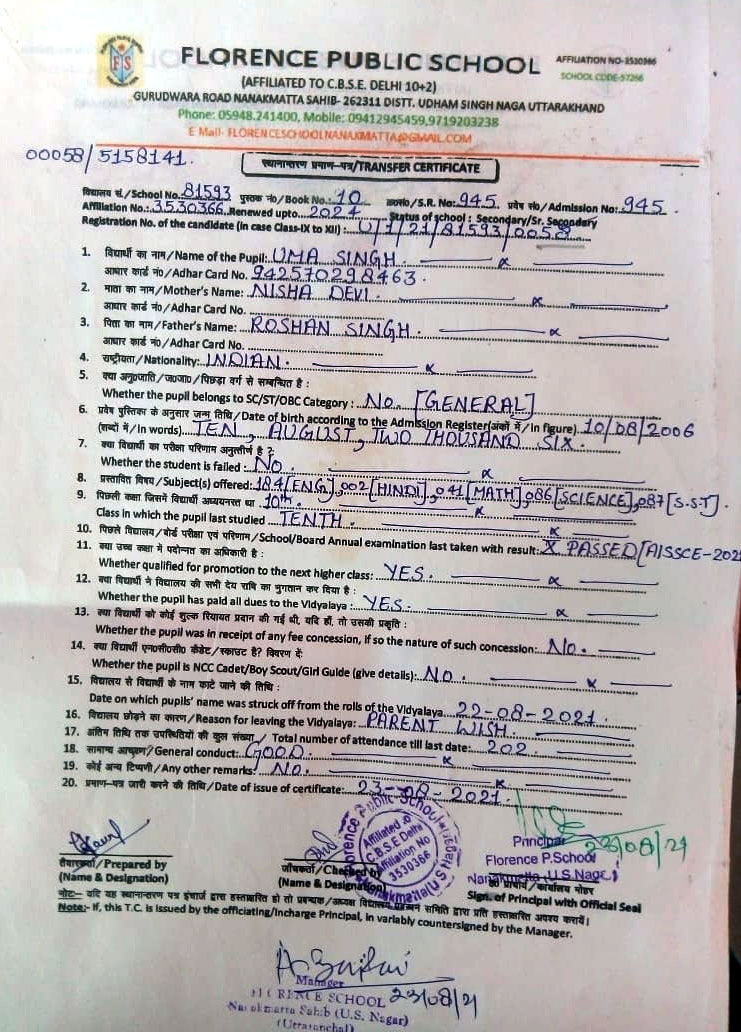 FLORENCE PUBLIC SCHOOL
AFFILIATION NO-3530366
SCHOOL CODE-57266
(AFFILIATED TO C.B.S.E. DELHI 10+2)
GURUDWARA ROAD NANAKMATTA SAHIB- 262311 DISTT. UDHAM SINGH NAGA UTTARAKHAND
Phone: 05948.241400, Mobile: 09412945459,9719203238
E Mail- FLORENCESCHOOLNANAKMATTA@GMAIL.COM
00058/5158141.
स्थानान्तरण प्रमाण-पत्र/TRANSFER CERTIFICATE
विद्यालय सं./School No. 81593 पुस्तक नं०/Book No.: 10 क्र०सं०/S.R. No: 945. प्रवेश सं०/Admission No: 945.
Affiliation No.: 3530366 Renewed upto 2024 Status of school : Secondary/Sr. Secondary
Registration No. of the candidate (in case Class-IX to XII) : U/1/21/81593/0058
1. विद्यार्थी का नाम/Name of the Pupil: UMA SINGH.
आधार कार्ड नं०/Adhar Card No. 942570298463.
2. माता का नाम/Mother's Name: NISHA DEVI.
आधार कार्ड नं०/Adhar Card No.
3. पिता का नाम/Father's Name: ROSHAN SINGH.
आधार कार्ड नं०/Adhar Card No.
4. राष्ट्रीयता/Nationality: INDIAN.
5. क्या अनु०जाति/ज०जा०/पिछड़ा वर्ग से सम्बन्धित है :
Whether the pupil belongs to SC/ST/OBC Category : No. [GENERAL]
6. प्रवेश पुस्तिका के अनुसार जन्म तिथि/Date of birth according to the Admission Register(अंकों में/In figure) 10/08/2006
(शब्दों में/In words) TEN, AUGUST, TWO THOUSAND SIX.
7. क्या विद्यार्थी का परीक्षा परिणाम अनुत्तीर्ण है ?
Whether the student is failed : No.
8. प्रस्तावित विषय/Subject(s) offered: 184[ENG],002[HINDI],041[MATH],086[SCIENCE],087[S.S.T].
9. पिछली कक्षा जिसमें विद्यार्थी अध्ययनरत था 10th.
Class in which the pupil last studied TENTH.
10. पिछले विद्यालय/बोर्ड परीक्षा एवं परिणाम/School/Board Annual examination last taken with result: X PASSED[AISSCE-202
11. क्या उच्च कक्षा में पदोन्नत का अधिकारी है :
Whether qualified for promotion to the next higher class: YES.
12. क्या विद्यार्थी ने विद्यालय की सभी देय राशि का भुगतान कर दिया है :
Whether the pupil has paid all dues to the Vidyalaya : YES.
13. क्या विद्यार्थी को कोई शुल्क रियायत प्रदान की गई थी, यदि हाँ, तो उसकी प्रकृति :
Whether the pupil was in receipt of any fee concession, if so the nature of such concession: No.
14. क्या विद्यार्थी एन०सी०सी० कैडेट/स्काउट है? विवरण दें:
Whether the pupil is NCC Cadet/Boy Scout/Girl Guide (give details): No.
15. विद्यालय से विद्यार्थी के नाम काटे जाने की तिथि :
Date on which pupils' name was struck off from the rolls of the Vidyalaya 22-08-2021.
16. विद्यालय छोड़ने का कारण/Reason for leaving the Vidyalaya: PARENT WISH.
17. अंतिम तिथि तक उपस्थितियों की कुल संख्या/ Total number of attendance till last date: 202.
18. सामान्य आचरण/General conduct: GOOD.
19. कोई अन्य टिप्पणी/Any other remarks: No.
20. प्रमाण-पत्र जारी करने की तिथि/Date of issue of certificate: 23-08-2021.
Florence Public School
Affiliated to
C.B.S.E Delhi
Affiliation No
3530366
Nanakmatta(U.S.Nagar)
Principal
23/08/21
Florence P.School
Nanakmatta (U.S.Nagar)
तैयारकर्ता/Prepared by
(Name & Designation)
जाँचकर्ता/Checked by
(Name & Designation)
प्राचार्य/कार्यालय मोहर
Sign. of Principal with Official Seal
नोटः- यदि यह स्थानान्तरण पत्र इंचार्ज द्वारा हस्ताक्षरित हो तो प्रबन्धक/अध्यक्ष विद्यालय प्रबन्धन समिति द्वारा प्रति हस्ताक्षरित अवश्य करायें।
Note:- If, this T.C. is issued by the officiating/incharge Principal, in variably countersigned by the Manager.
Manager
FLORENCE SCHOOL 23/08/21
Nanakmatta Sahib (U.S. Nagar)
(Uttaranchal)